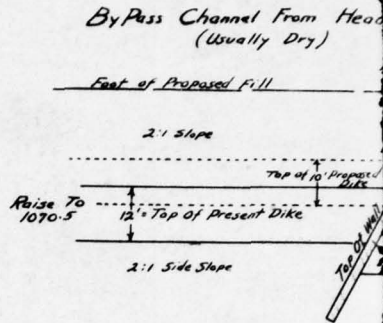 ByPass Channel From Head
(Usually Dry)
Foot of Proposed Fill
2:1 Slope
Top of 10' Proposed
Dike
Raise To
1070.5
12' = Top Of Present Dike
2:1 Side Slope
Top Of Wall